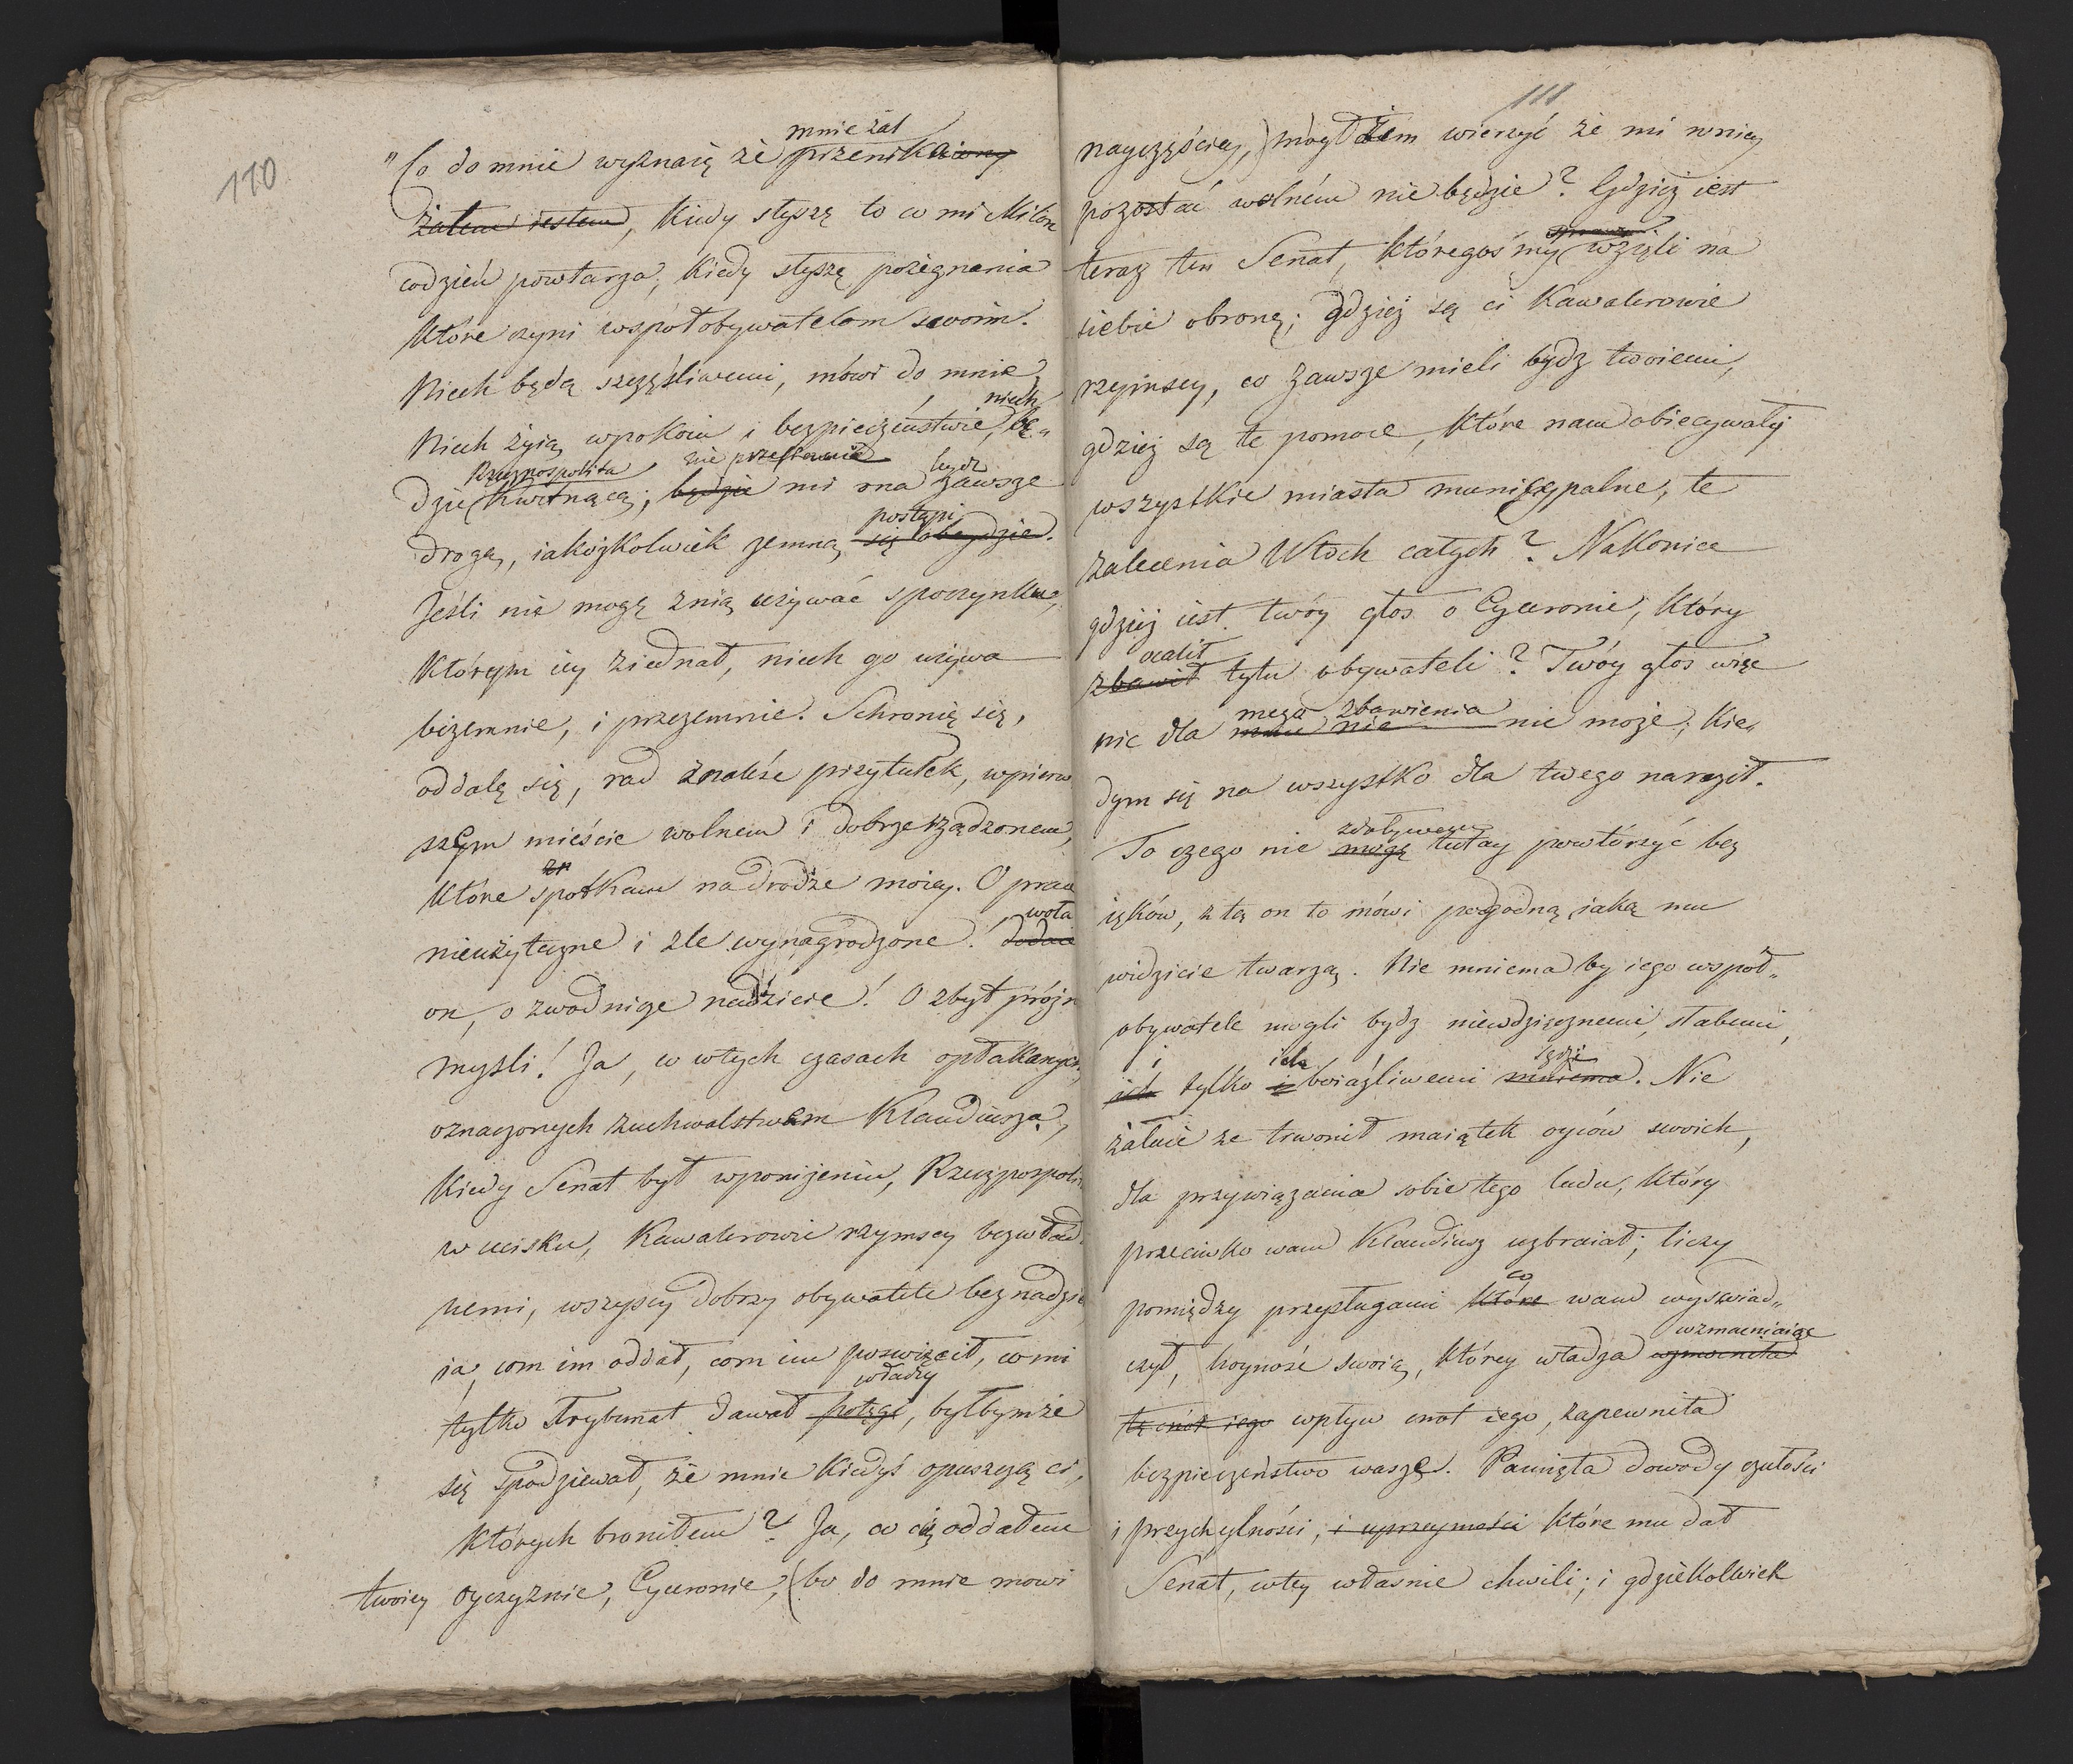 110
mnie żal
"Co do mnie wyznaię że przenikniony
żalem iestem, kiedy słyszę to co mi Milon
codzień powtarza, kiedy słyszę pożegnania
które czyni współobywatelom swoim.
Niech będą szczęśliwemi, mówi do mnie,
niech
Niech żyią w pokoiu i bezpieczeństwie, bę„
Rzeczpospolita nie przestanie bydz
dzie kwitnącą; będzie mi ona zawsze
postąpi
drogą, iakożkolwiek zemną się obeydzie.
Jeśli nie mogę z nią używać spoczynku,
którym iey ziednał, niech go używa
bezemnie, i przezemnie. Schronię się,
oddalę się, rad znaleść przytułek, w pierw
szem mieście wolnem i dobrze rządzonem,
które spotkam na drodze moiey. O prace
woła
nieużyteczne i źle wynagrodzone! dodaie
on, o zwodnicze nadzieie! O zbyt próżn
myśli! Ja, co w tych czasach opłakanych,
oznaczonych zuchwalstwem Klaudiusza,
kiedy Senat był w poniżeniu, Rzeczpospoli
w ucisku, Kawalerowie rzymscy bezwład
nemi, wszyscy dobrzy obywatele bez nadzie
ia, com im oddał, com im poswięcił, co mi
władzy
tylko Trybunat dawał potęgi, byłbymże
się spodziewał, że mnie kiedyś opuszczą ci,
których broniłem? Ja, co cię oddałem
twoiey oyczyznie, Cyceronie, (bo do mnie mowi
111
nayczęściey,) mógłżem wierzyć że mi w niey
pozostać wolném nie będzie? Gdzież iest
teraz ten Senat, któregośmy wzięli na
siebie obronę; gdzież są ci Kawalerowie
rzymscy, co zawsze mieli bydz twoiemi,
gdzież są te pomoce, które nam obiecywały
wszystkie miasta municypalne, te
zalecenia Włoch całych? Nakoniec
gdzież iest twóy głos o Cyceronie, który
ocalił
zbawił tylu obywateli? Twóy głos więc
mego zbawienia
nic dla mnie nie może; kie„
dym się na wszystko dla twego naraził.
zdoływam
To czego nie mogę tutay powtórzyć bez
ięków, z tą on to mówi pogodną iaką mu
widzicie twarzą. Nie mniema by iego współ„
obywatele mogli bydz niewdzięcznemi, słabemi,
i ich sądzi
ich tylko i boiaźliwemi mniema. Nie
żałuie że trwonił maiątek oyców swoich,
dla przywiązania sobie tego ludu, który
przeciwko wam Klaudiusz uzbraiał; liczy
co
pomiędzy przysługami które wam wyswiad„
wzmacniaiąc
czył, hoyność swoią, którey władza wzmocniła
te cnót iego wpływ cnót iego, zapewniła
bezpieczeństwo wasze. Pamięta dowody czułości
i przychylności, i uprzeymości które mu dał
Senat, w tey właśnie chwili; i gdziekolwiek